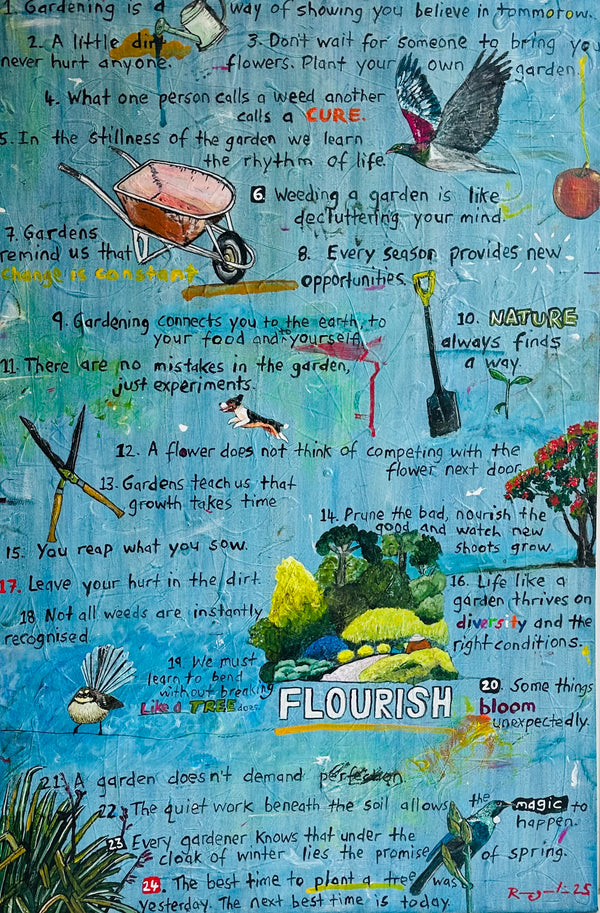 1. Gardening is a way of showing you believe in tommorow.
2. A little dirt
never hurt anyone.
3. Don't wait for someone to bring you
flowers. Plant your own garden.
4. What one person calls a weed another
calls a CURE.
5. In the stillness of the garden we learn
the rhythm of life.
6. Weeding a garden is like
decluttering your mind.
7. Gardens
remind us that
change is constant
8. Every season provides new
opportunities.
9. Gardening connects you to the earth, to
your food and to yourself.
10. NATURE
always finds
a way.
11. There are no mistakes in the garden,
just experiments.
12. A flower does not think of competing with the
flower next door
13. Gardens teach us that
growth takes time
14. Prune the bad, nourish the
good and watch new
shoots grow.
15. You reap what you sow.
16. Life like a
garden thrives on
diversity and the
right conditions.
17. Leave your hurt in the dirt.
18. Not all weeds are instantly
recognised.
19. We must
learn to bend
without breaking
Like a TREE does.
FLOURISH
20. Some things
bloom
unexpectedly.
21. A garden doesn't demand perfection.
22. The quiet work beneath the soil allows the magic to
happen.
23 Every gardener knows that under the
cloak of winter lies the promise of spring.
24. The best time to plant a tree was
yesterday. The next best time is today.